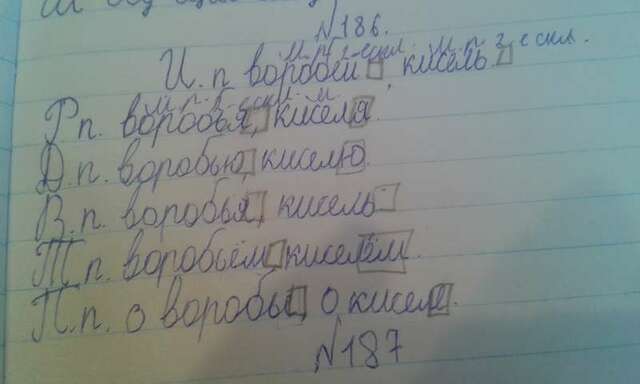 №186.
м. р. 2-е скл. м. р. 2-е скл.
И. п. воробей, кисель.
Р. п. воробья, киселя.
Д. п. воробью, киселю.
В. п. воробья, кисель.
Т. п. воробьём, киселём.
П. п. о воробье, о киселе.
№187